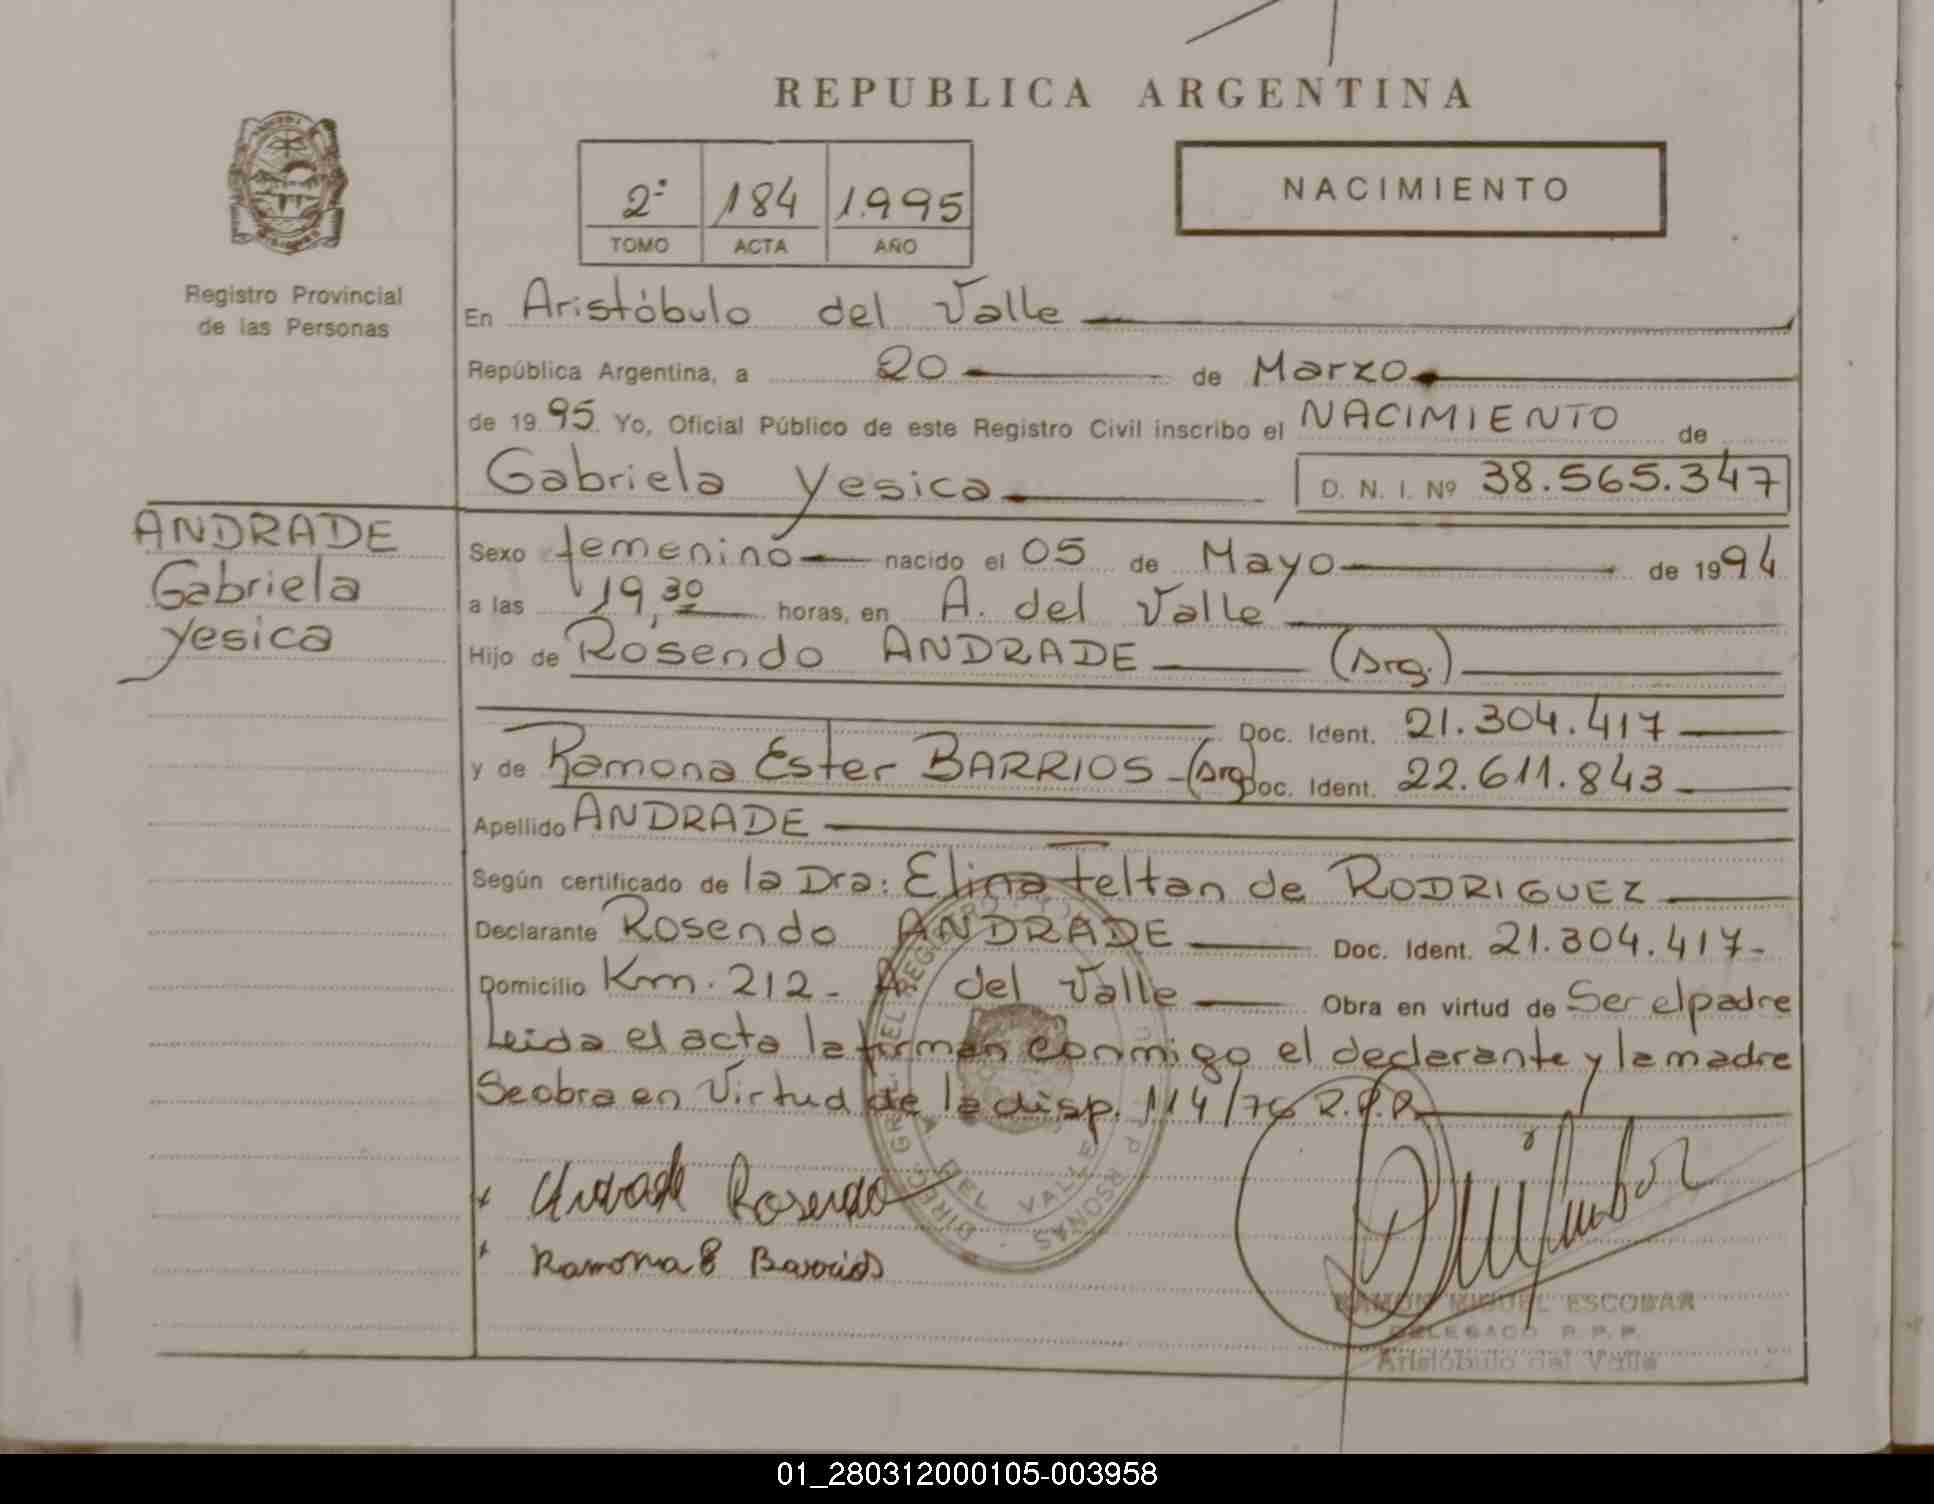 REPUBLICA ARGENTINA
2º 184 1.995
TOMO ACTA AÑO
NACIMIENTO
Registro Provincial
de las Personas
En Aristóbulo del Valle
República Argentina, a 20 de Marzo
de 1995 Yo, Oficial Público de este Registro Civil inscribo el NACIMIENTO de
Gabriela Yesica D. N. I. Nº 38.565.347
ANDRADE
Gabriela
Yesica
Sexo femenino nacido el 05 de Mayo de 1994
a las 19,30 horas, en A. del Valle
Hijo de Rosendo ANDRADE (Arg.)
Doc. Ident. 21.304.417
y de Ramona Ester BARRIOS - (Arg) Doc. Ident. 22.611.843
Apellido ANDRADE
Según certificado de la Dra: Elina Feltan de RODRIGUEZ
Declarante Rosendo ANDRADE Doc. Ident. 21.304.417-
Domicilio Km. 212- A del Valle Obra en virtud de Ser el padre
Leida el acta la firman conmigo el declarante y la madre
Se obra en Virtud de la disp. 114/76 R.P.P.
DEL VALLE
Andrade Rosendo
Ramona E Barrios
RAMON MIGUEL ESCOBAR
DELEGADO R. P. P.
Aristóbulo del Valle
01_280312000105-003958